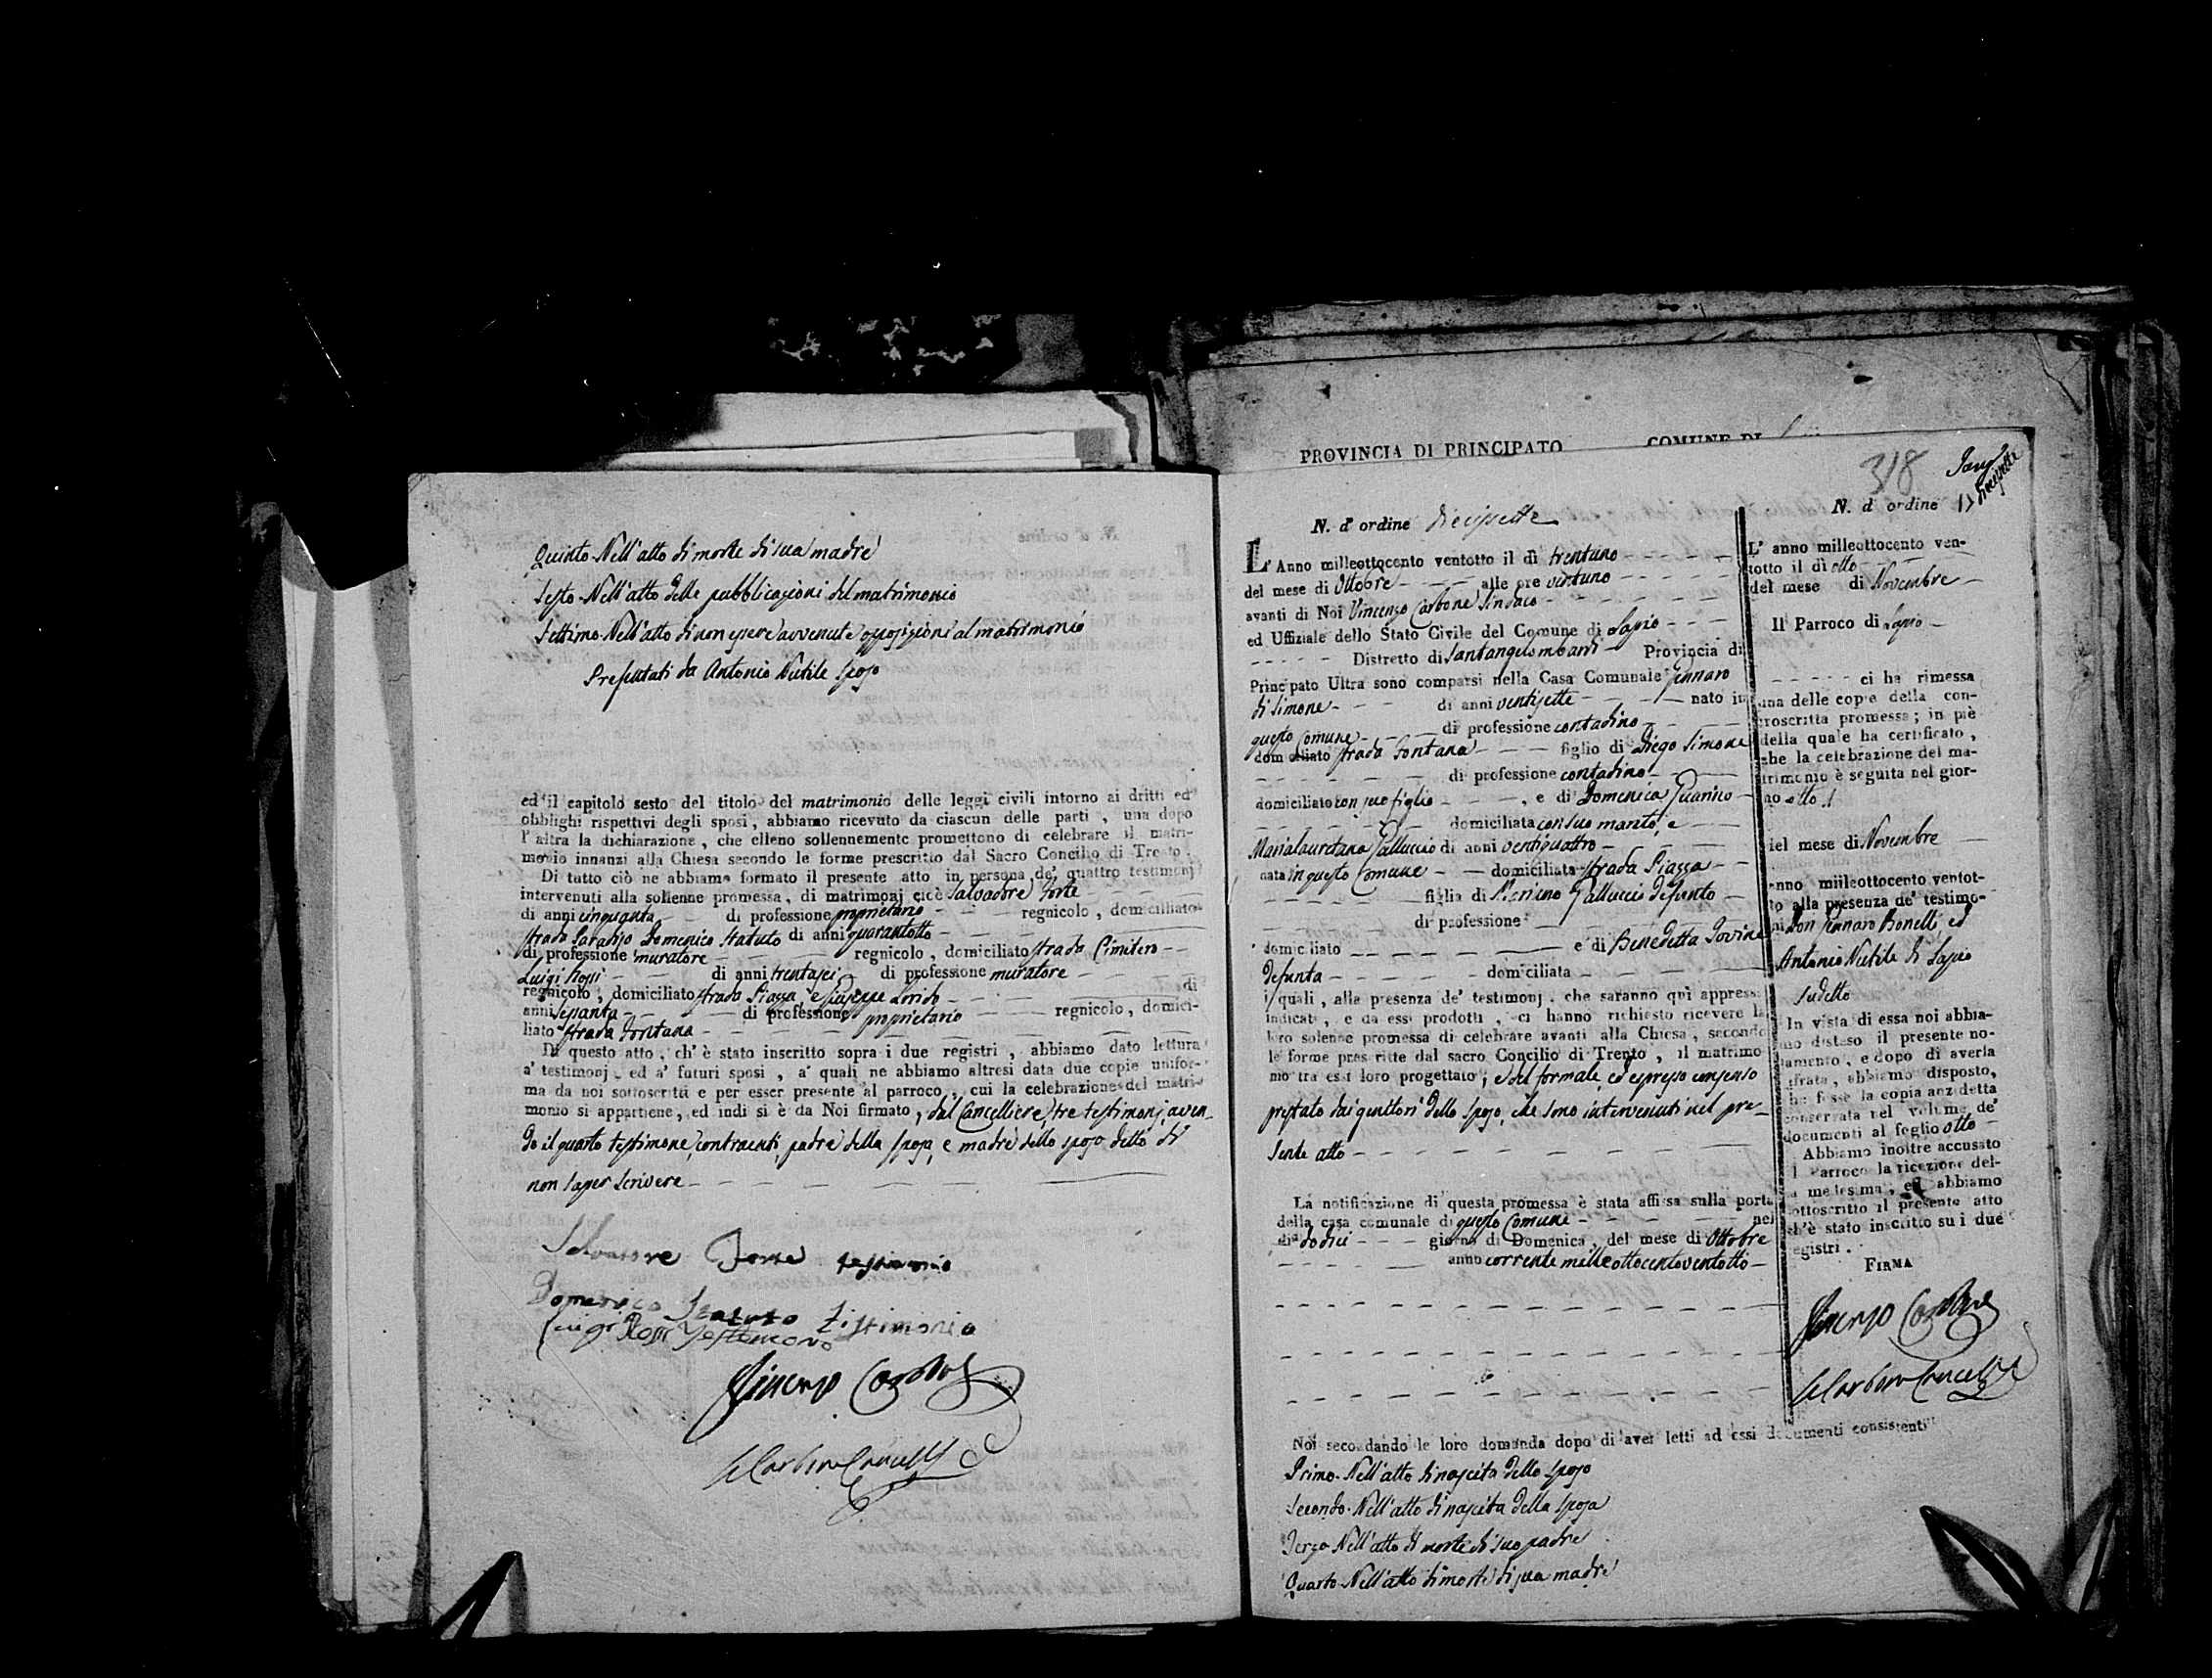 Quinto-Nell'atto di morte di sua madre
Sesto-Nell'atto delle pubblicazioni del matrimonio
Settimo-Nell'atto di non essere avvenute opposizioni al matrimonio
Presentati da Antonio Nutile sposo
ed il capitolo sesto del titolo del matrimonio delle leggi civili intorno ai dritti ed
obblighi rispettivi degli sposi, abbiamo ricevuto da ciascun delle parti, una dopo
l'altra la dichiarazione, che elleno sollennemente promettono di celebrare il matri-
monio innanzi alla Chiesa secondo le forme prescritto dal Sacro Concilio di Trento.
Di tutto ciò ne abbiamo formato il presente atto in persona de' quattro testimonj
intervenuti alla sollenne promessa, di matrimonj cicè Salvadore Forte
di anni cinquanta di professione proprietario regnicolo, domicilliato
strada Paradiso Domenico Statuto di anni quarantotto
di professione muratore regnicolo, domiciliato strada Cimitero
Luigi Rossi di anni trentasei di professione muratore
regnicolo, domiciliato strada Piazza, e Giuseppe di
anni sessanta di professione proprietario regnicolo, domici-
liato strada Fontana
Di questo atto, ch'è stato inscritto sopra i due registri, abbiamo dato lettura
a' testimonj, ed a' futuri sposi, a' quali ne abbiamo altresì data due copie unifor-
ma da noi sottoscritti e per esser presente al parroco, cui la celebrazione del matri-
monio si appartiene, ed indi si è da Noi firmato, dal Cancelliere, tre testimonj, aven-
do il quarto testimone, contraenti, padre della sposa, e madre dello sposo detto di
non saper scrivere
Salvatore Forte testimonio
Domenico Statuto Testimonio
Luigi Rossi Testimono
Vincenzo Carbone
PROVINCIA DI PRINCIPATO COMUNE DI
318
diecisette
N. d' ordine diecisette
L' Anno milleottocento ventotto il dì trentuno
del mese di Ottobre alle ore ventuno
avanti di Noi Vincenzo Carbone Sindaco
ed Uffiziale dello Stato Civile del Comune di Lapio
Distretto di Santangelo Provincia di
Principato Ultra sono comparsi nella Casa Comunale Gennaro
di Simone di anni ventisette nato in
questo Comune di professione contadino
domiciliato strada Fontana figlio di Diego Simone
di professione contadino
domiciliato con suo figlio, e di Domenica Guarino
domiciliata con suo marito, e
Marialauretana Galluccio di anni ventiquattro
nata in questo Comune domiciliata strada Piazza
figlia di Galluccio defunto
di professione
domiciliato e di Benedetta Iovine
defunta domiciliata
i quali, alla presenza de' testimonj, che saranno quì appresso
indicati, e da essi prodotti, ci hanno richiesto ricevere la
loro solenne promessa di celebrare avanti alla Chiesa, secondo
le forme prescritte dal sacro Concilio di Trento, il matrimo
nio tra essi loro progettato, e del formale, ed espresso consenso
prestato dai genitori dello sposo, che sono intervenuti nel pre-
sente atto
La notificazione di questa promessa è stata affissa sulla porta
della casa comunale di questo Comune nel
dì dodici giorno di Domenica, del mese di Ottobre
anno corrente milleottocentoventotto
Noi secondando le loro domanda dopo di aver letti ad essi documenti consistenti
Primo-Nell'atto di nascita dello sposo
Secondo-Nell'atto di nascita della sposa
Terzo-Nell'atto di morte di suo padre
Quarto-Nell'atto di morte di sua madre
N. d' ordine 17
L' anno milleottocento ven-
totto il dì otto
del mese di Novembre
Il Parroco di Lapio
ci ha rimessa
una delle copie della con-
troscritta promessa; in piè
della quale ha certificato,
che la celebrazione del ma-
trimonio è seguita nel gior-
no otto
del mese di Novembre
anno milleottocento ventot-
to alla presenza de' testimo-
ni Don Gennaro Bonelli, ed
Antonio Nutile di Lapio
sudetto
In vista di essa noi abbia-
mo disteso il presente no-
tamento, e dopo di averla
cifrata, abbiamo disposto,
che fosse la copia anzidetta
conservata nel volume de'
documenti al foglio otto
Abbiamo inoltre accusato
al Parroco la ricezione del-
la medesima, ed abbiamo
sottoscritto il presente atto
ch'è stato inscritto su i due
registri.
FIRMA
Vincenzo Carbone